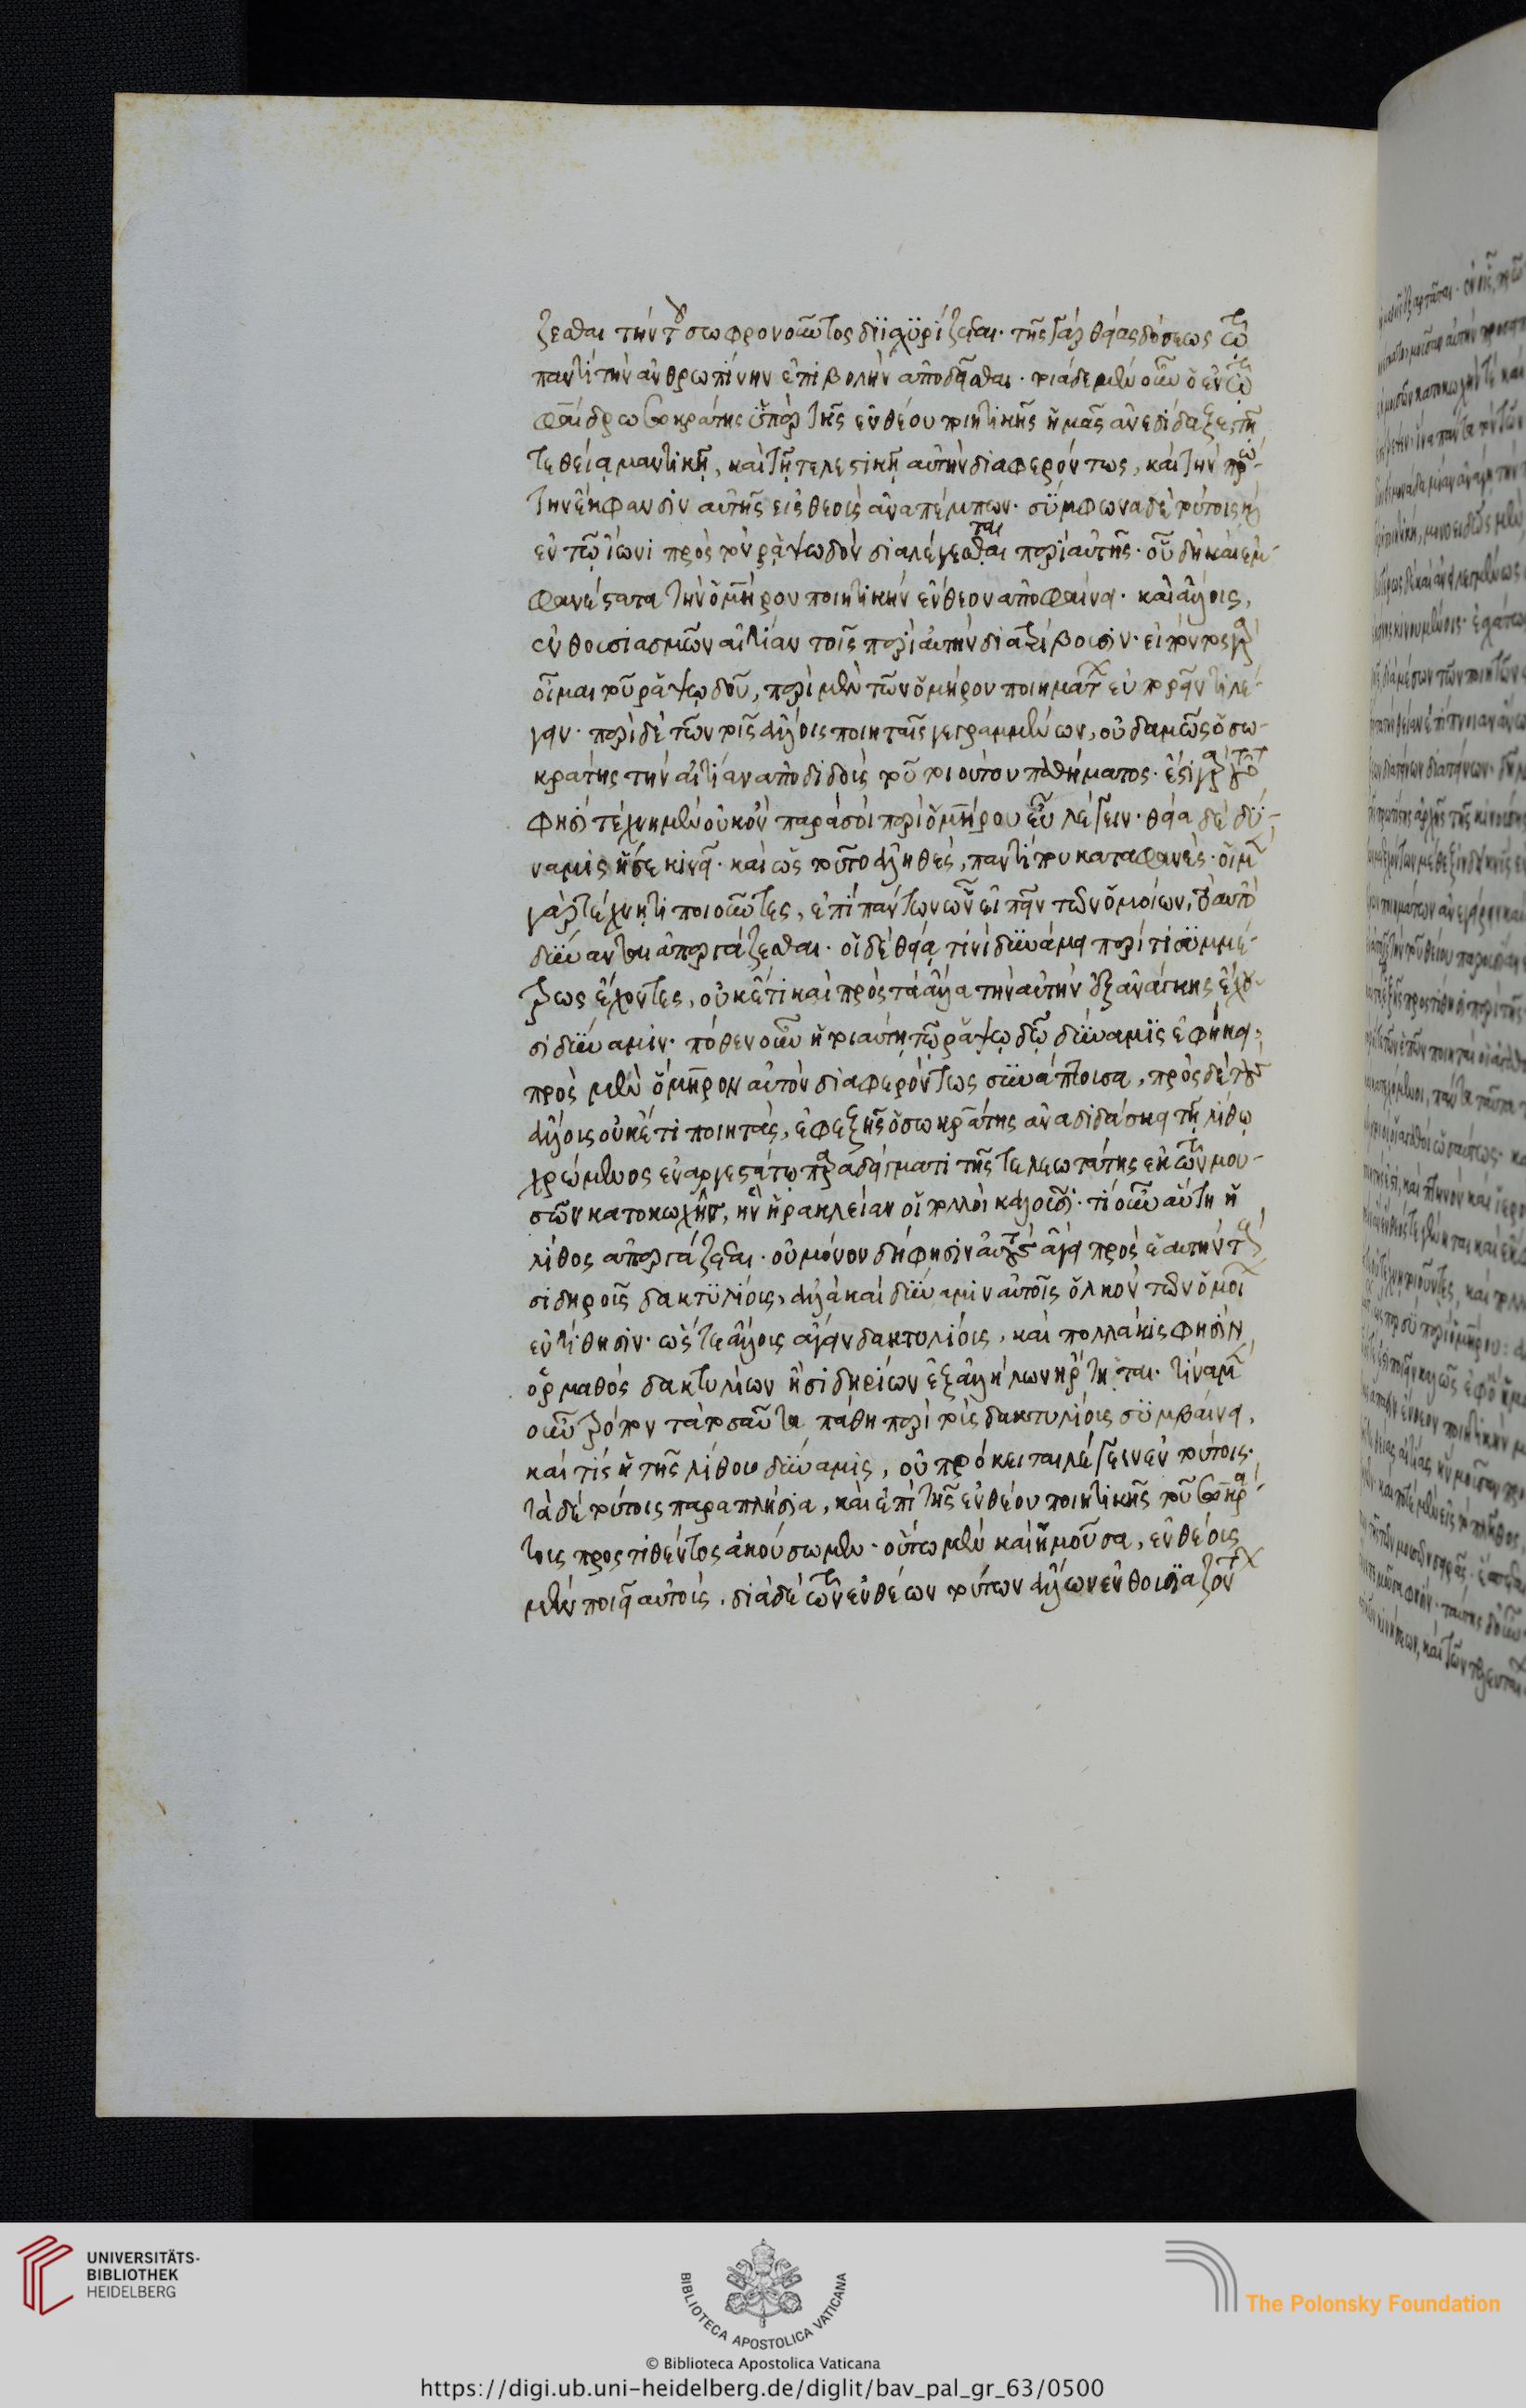 ζεσθαι τὴν τοῦ σωφρονοῦντος διϊσχυρίζεται· τῆς γὰρ θείας δόσεως τῶ
παντὶ τὴν ἀνθρωπίνην ἐπιβολὴν ἀποδεῖσθαι· τοιάδε μὲν οὖν ὁ ἐν τῶ
φαίδρω σωκράτης ὑπὲρ τῆς ἐνθέου ποιητικῆς ἡμᾶς ἀνεδίδαξε τῆ
τε θεία μαντικῆ, καὶ τῆ τελεστικῆ αὐτὴν διαφερόντως, καὶ τὴν πρώ-
την ἔκφανσιν αὐτῆς εἰς θεοὺς ἀναπέμπων· σύμφωνα δὲ τούτοις καὶ
ἐν τῶ ἴωνι πρὸς τὸν ῥαψωδὸν διαλέγεσθαι ται περὶ αὐτῆς· οὗ δὴ καὶ ἐμ-
φανέστατα τὴν ὁμήρου ποιητικὴν ἔνθεον ἀποφαίνει· καὶ ἄλλοις,
ἐνθουσιασμῶν αἰτίαν τοῖς περὶ αὐτὴν διατρίβουσιν· εἰπόντος γὰρ
οἶμαι τοῦ ῥαψωδοῦ, περὶ μὲν τῶν ὁμήρου ποιημάτων εὐπορεῖν τι λέ-
γειν· περὶ δὲ τῶν τοῖς ἄλλοις ποιηταῖς γεγραμμένων, οὐδαμῶς ὁ σω-
κράτης τὴν αἰτίαν ἀποδιδοὺς τοῦ τοιούτου παθήματος· ἔστι γὰρ τοῦτο
φησὶ τέχνη μὲν οὐκ ὂν παρὰ σοὶ περὶ ὁμήρου εὖ λέγειν· θεία δὲ δύ-
ναμις ἥ σε κινεῖ· καὶ ὡς τοῦτο ἀληθές, παντί που καταφανές· οἱ μὲν
γὰρ τέχνη τι ποιοῦντες, ἐπὶ πάντων ὡς εἰπεῖν τῶν ὁμοίων, τὸ αὐτὸ
δύνανται ἀπεργάζεσθαι· οἱ δὲ θεία τινὶ δυνάμει περί τι συμμέ-
τρως ἔχοντες, οὐκέτι καὶ πρὸς τὰ ἄλλα τὴν αὐτὴν ἐξ ἀνάγκης ἔχου-
σι δύναμιν· πόθεν οὖν ἡ τοιαύτη τῶ ῥαψωδῶ δύναμις ἐφήκει,
πρὸς μὲν ὅμηρον αὐτὸν διαφερόντως συνάπτουσα, πρὸς δὲ τοὺς
ἄλλους οὐκέτι ποιητάς, ἐφεξῆς ὁ σωκράτης ἀναδιδάσκει τῆ λίθω
χρώμενος ἐναργεστάτω παραδείγματι τῆς τελεωτάτης ἐκ τῶν μου-
σῶν κατοκωχῆς, ἣν ἡρακλείαν οἱ πολλοὶ καλοῦσι· τί οὖν αὕτη ἡ
λίθος ἀπεργάζεται· οὐ μόνον δὴ φησὶν αὐτοὺς ἄγει πρὸς ἑαυτὴν τοὺς
σιδηροῦς δακτυλίους, ἀλλὰ καὶ δύναμιν αὐτοῖς ὁλκὸν τῶν ὁμοίων
ἐντίθησιν· ὥστε ἄλλους ἄγειν δακτυλίους, καὶ πολλάκις φησὶν
ὁρμαθὸς δακτυλίων ἢ σιδηρίων ἐξ ἀλλήλων ἤρτηται· τίνα μὲν
οὖν τρόπον τὰ τοσαῦτα πάθη περὶ τοὺς δακτυλίους συμβαίνει,
καὶ τίς ἡ τῆς λίθου δύναμις, οὐ πρόκειται λέγειν ἐν τούτοις·
τὰ δὲ τούτοις παραπλήσια, καὶ ἐπὶ τῆς ἐνθέου ποιητικῆς τοῦ σωκρά-
τους προστιθέντος ἀκούσωμεν· οὕτω μὲν καὶ ἡ μοῦσα, ἐνθέους
μὲν ποιεῖ αὐτούς, διὰ δὲ τῶν ἐνθέων τούτων ἄλλων ἐνθουσιαζόντων
UNIVERSITÄTS-
BIBLIOTHEK
HEIDELBERG
BIBLIOTECA APOSTOLICA VATICANA
The Polonsky Foundation
© Biblioteca Apostolica Vaticana
https://digi.ub.uni-heidelberg.de/diglit/bav_pal_gr_63/0500